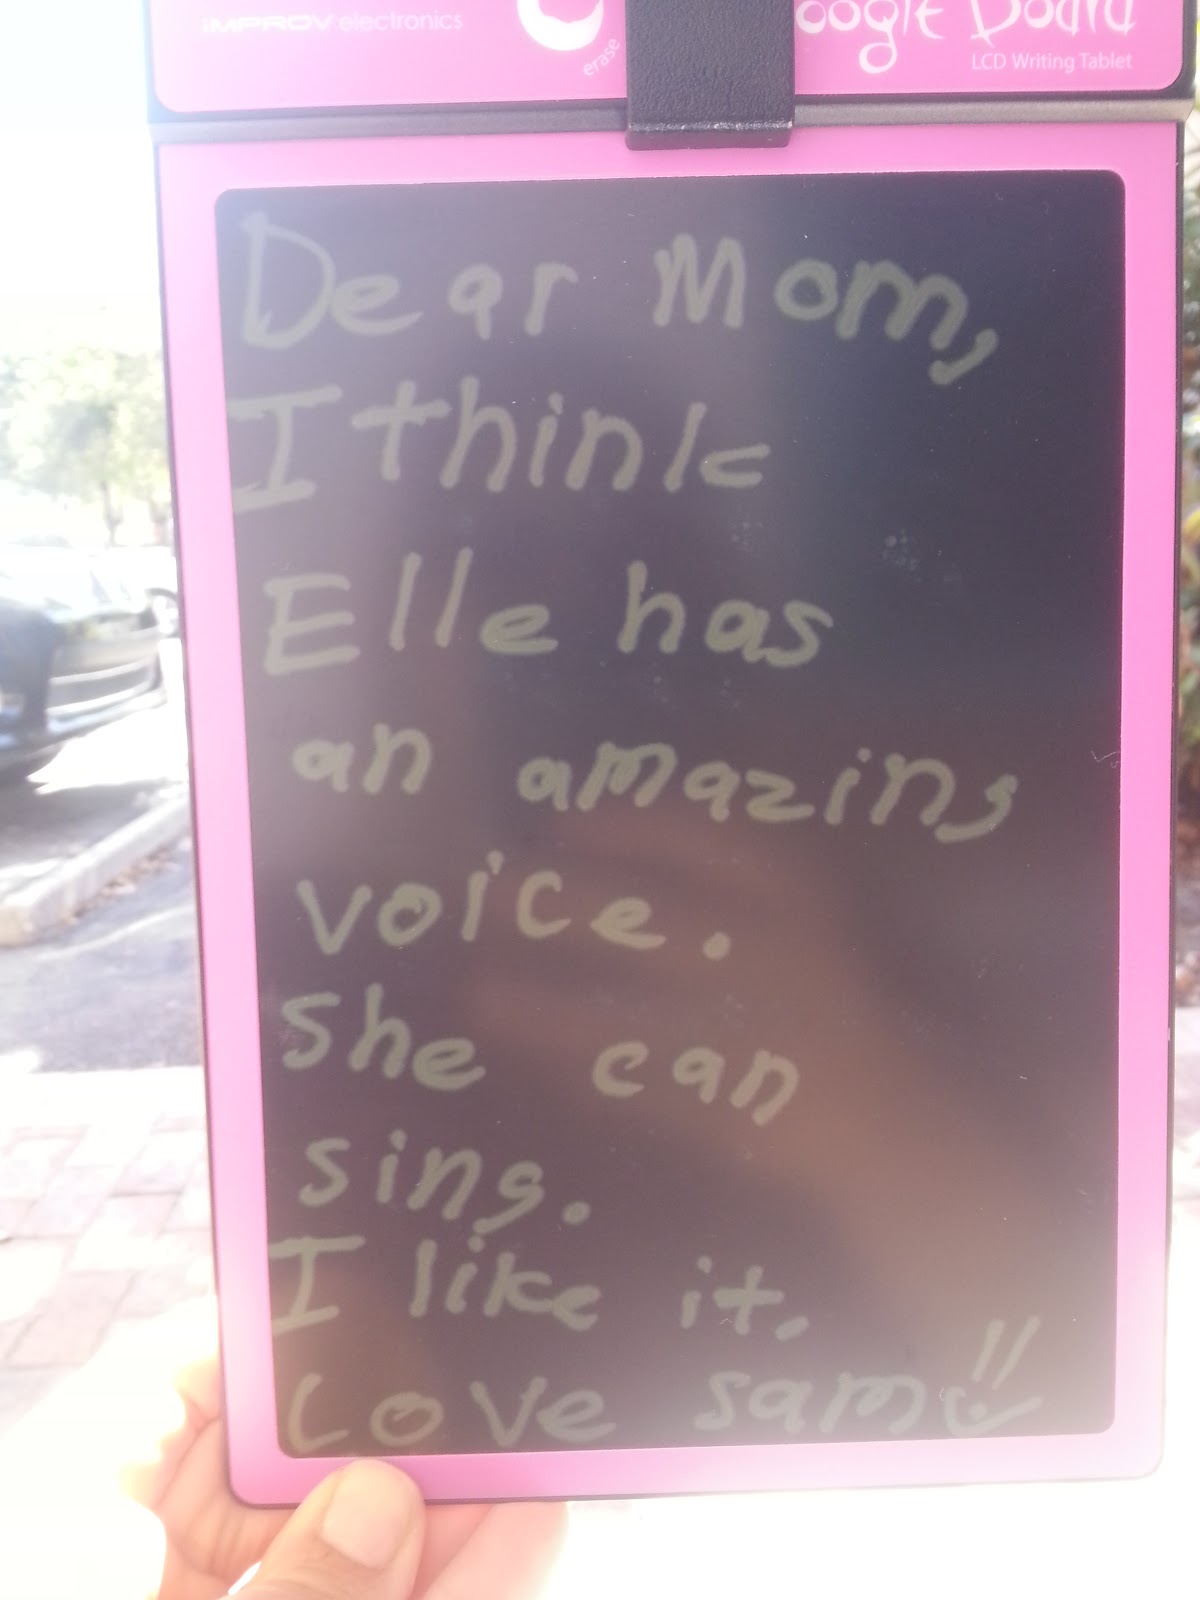 IMPROV electronics
erase
oogie Board
LCD Writing Tablet
Dear Mom,
I think
Elle has
an amazing
voice.
She can
sing.
I like it.
Love Sam